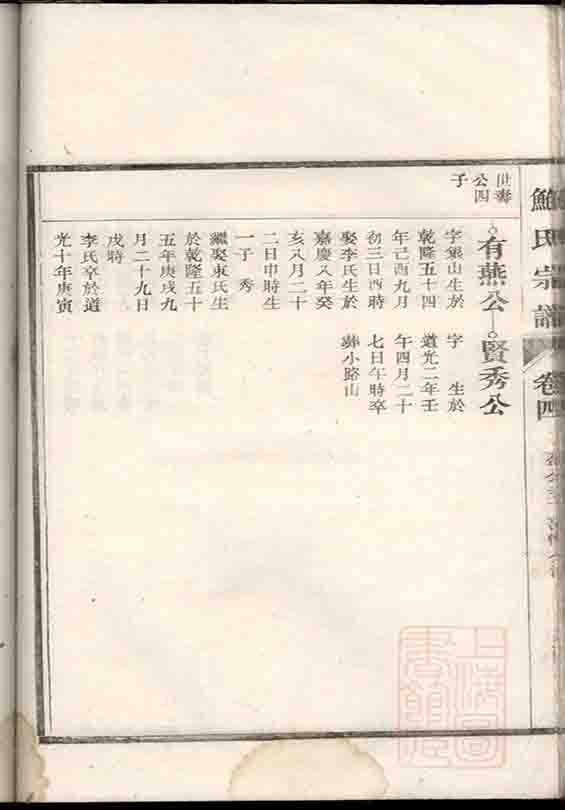 鮑氏宗譜
卷四
世壽
公四
子
有燕公
賢秀公
字
山生於
乾隆五十四
年己酉九月
初三日酉時
娶李氏生於
嘉慶八年癸
亥八月二十
二日申時生
一子 秀
繼娶東氏生
於乾隆五十
五年庚戌九
月二十九日
戌時
李氏卒於道
光十年庚寅
字 生於
道光二年壬
午四月二十
七日午時卒
葬小路山
上海圖
書館藏